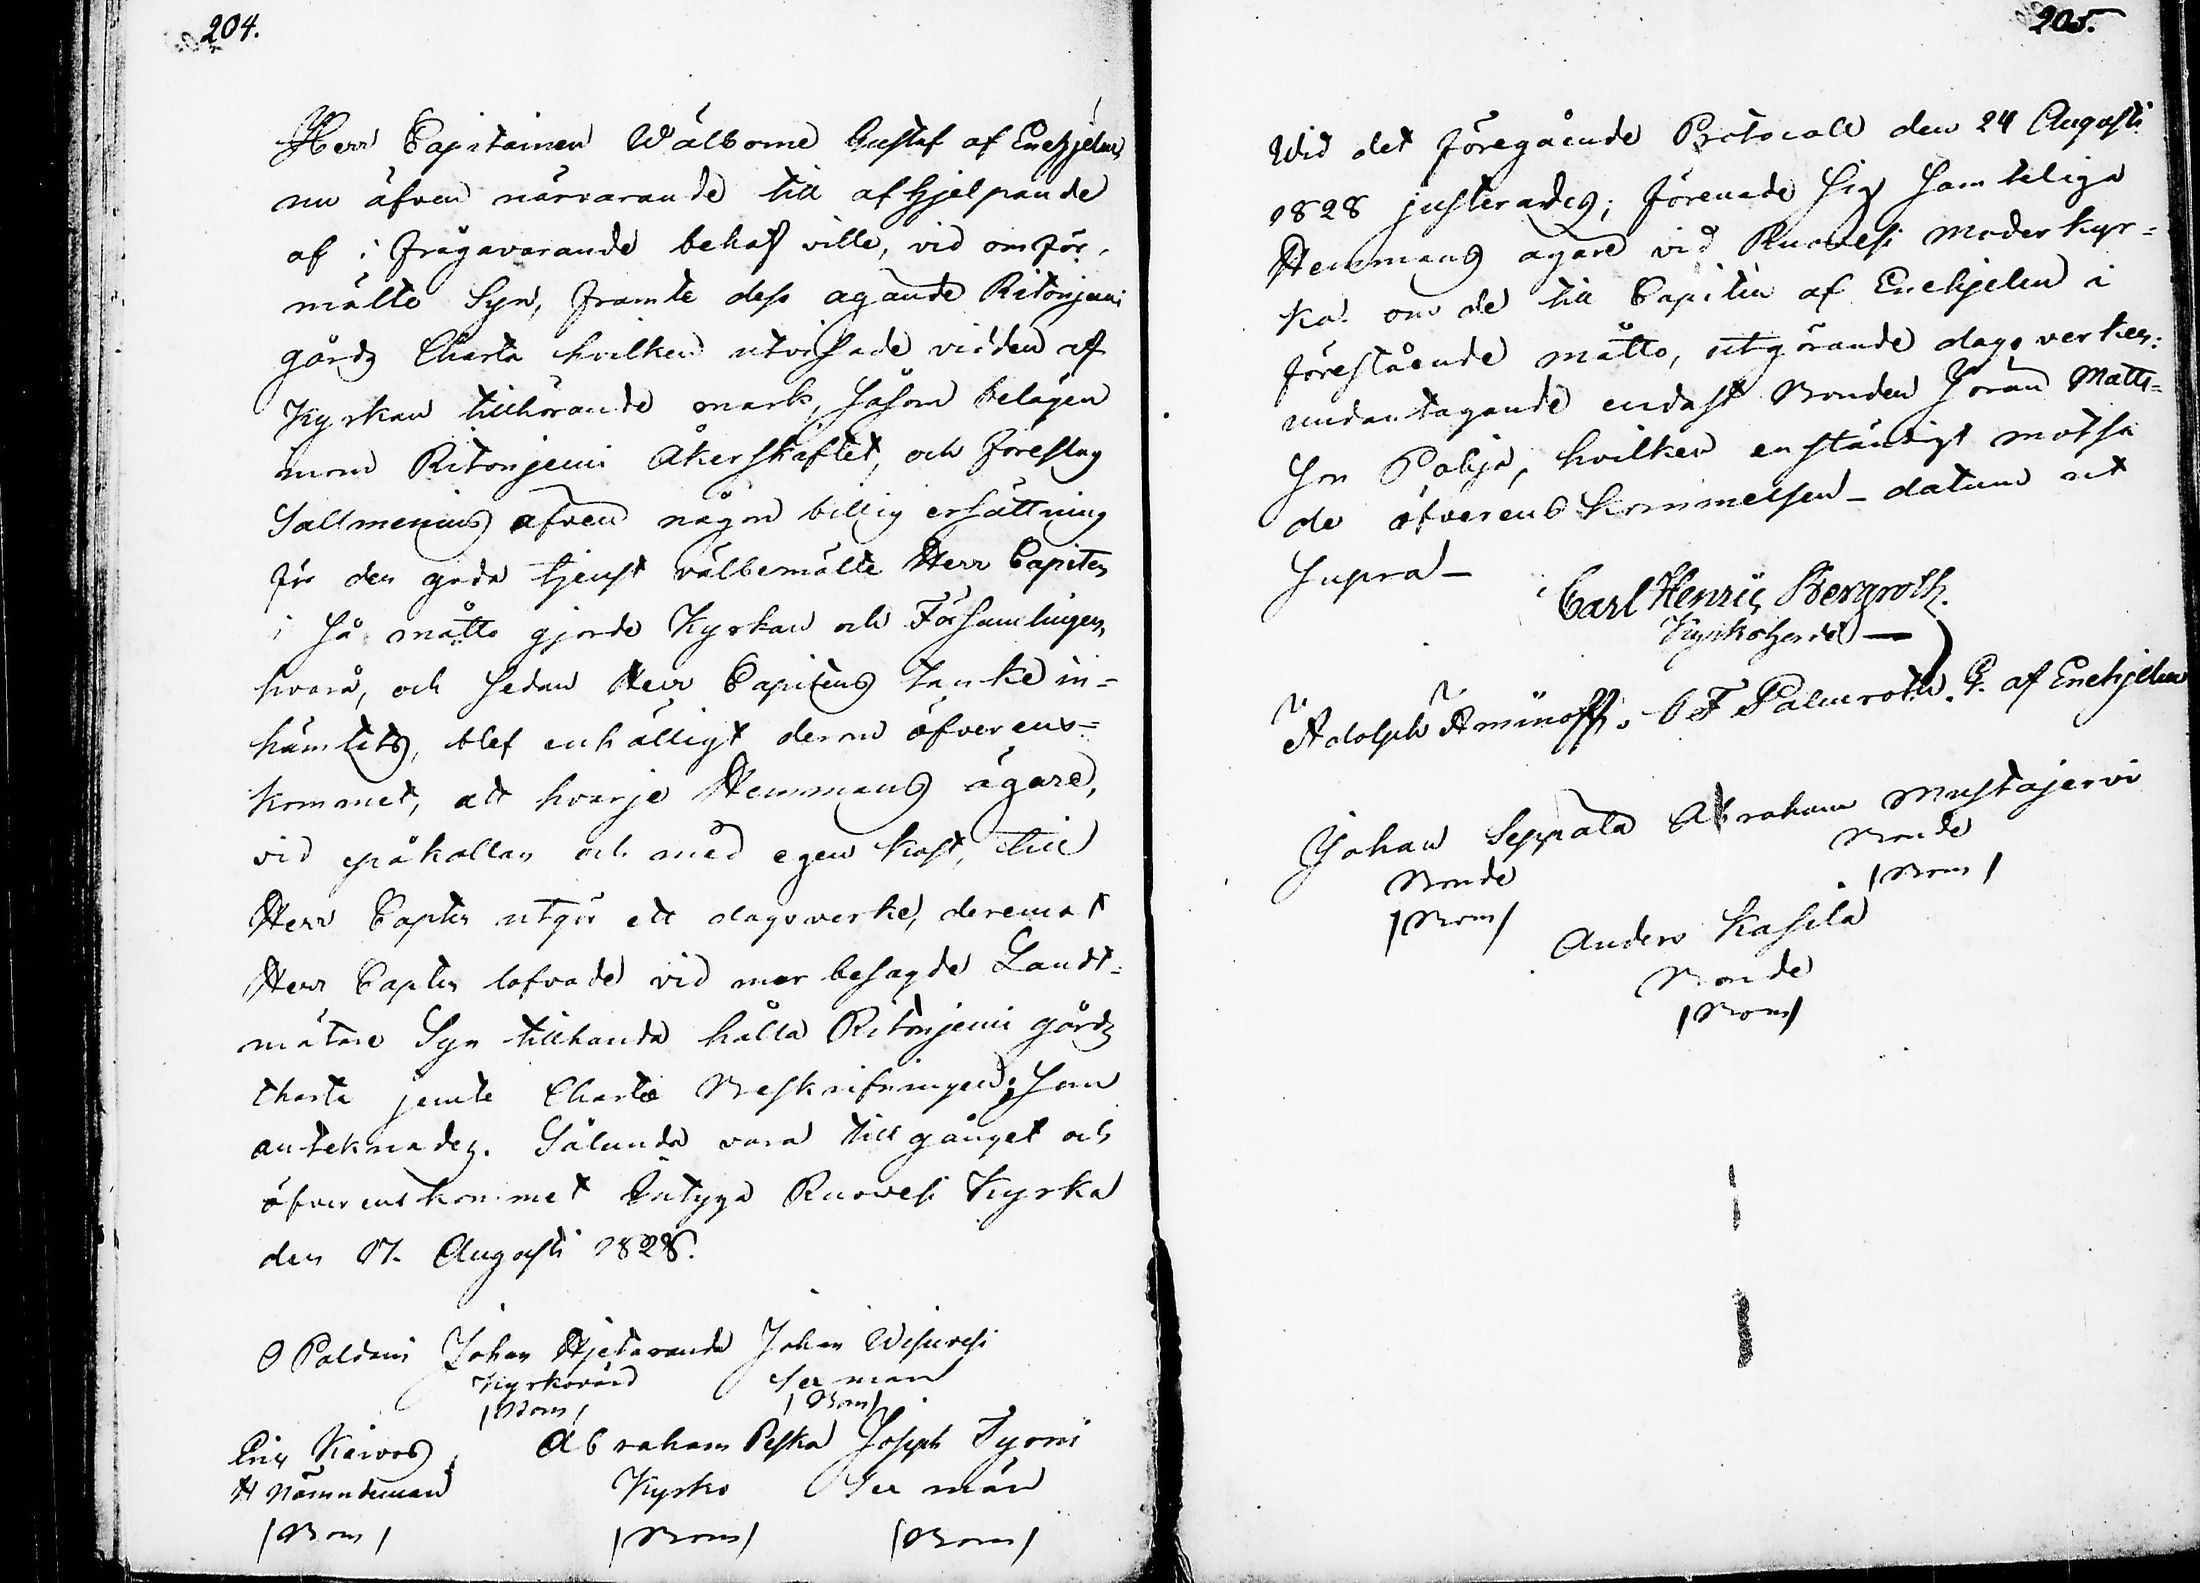 204.
Herr Capitainen Wälborne Gustaf af Enehjelm
nu äfven närvarande till afhjelpande
af i frågavarande behof ville, vid omför¬
mälte Syn, framte dess ägande Ritoniemi
gårds Charta hvilken utvisade vidden af
Kyrkan tillhörande mark, såsom belägen
inom Ritoniemi Åkerskiftet, och föreslog
Sallmenius äfven någon billig ersättning
för den goda tjenst välbemälte Herr Capiten
i så måtto gjorde Kyrkan och Församlingen,
hvarå, och sedan Herr Capitens tanke in=
hämtats, blef enhälligt derom öfverens=
kommet, att hvarje Hemmans ägare,
vid påkallan och med egen kost, till
Herr Capten utgör ett dagsverke, deremot
Herr Capten lofvade vid mer besagde Landt=
mätare Syn tillhanda hålla Ritoniemi gårds
charta jemte Charte Beskrifningen; Som
antecknades. Sålunda vara tillgånget och
öfverenskommet intyga Ruovesi Kyrka
den 17. Augusti 1828.
O Paldani Johan Hjetaranda Johan Wisuvesi
Kyrkovärd Sexman
/Bom/ /Bom/
Eric Kaivos Abraham Peska Joseph Tyrni
H Nämndeman Kyrko Sex män
/Bom/ /Bom/ /Bom/
205.
Wid det föregående Protocoll den 24 Augusti
1828 justerades; förenade sig samtelige
Hemmans ägare vid Ruovesi moderkyr=
ka om de till Capiten af Enehjelm i
förestående måtto, utgörande dagsverken:
undantagande endast Bonden Jöran Matts=
son Pohja, hvilken enständigt motsa
de öfverenskommelsen – datum ut
supra –
Carl Henric Bergroth.
Kyrkoherde –
Adolph Aminoff. C F Palmroth. G. af Enehjelm
Johan Seppälä Abraham Mustajervi
Bonde Bonde
/Bom/ /Bom/
Anders Kassila
Bonde
/Bom/